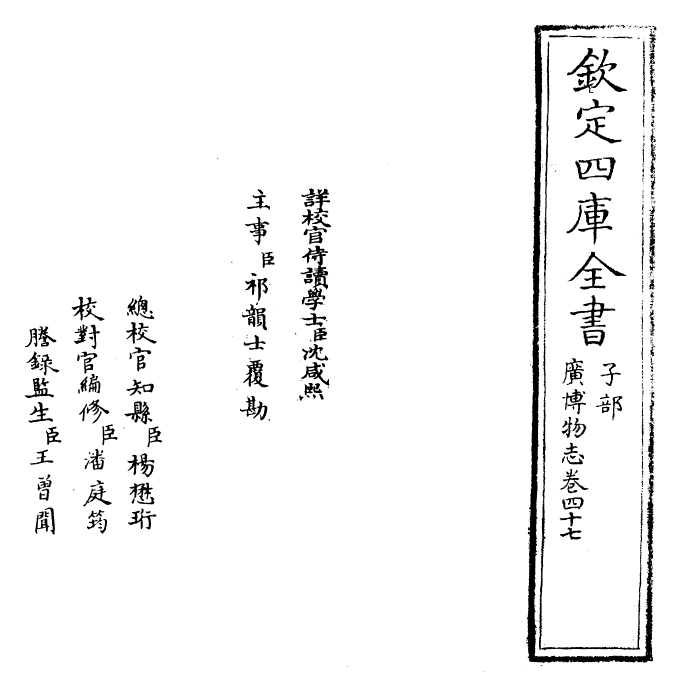 欽定四庫全書
子部
廣博物志卷四十七
詳校官侍讀學士臣沈咸熙
主事臣祁韻士覆勘
總校官知縣臣楊懋珩
校對官編修臣潘庭筠
謄錄監生臣王曾聞